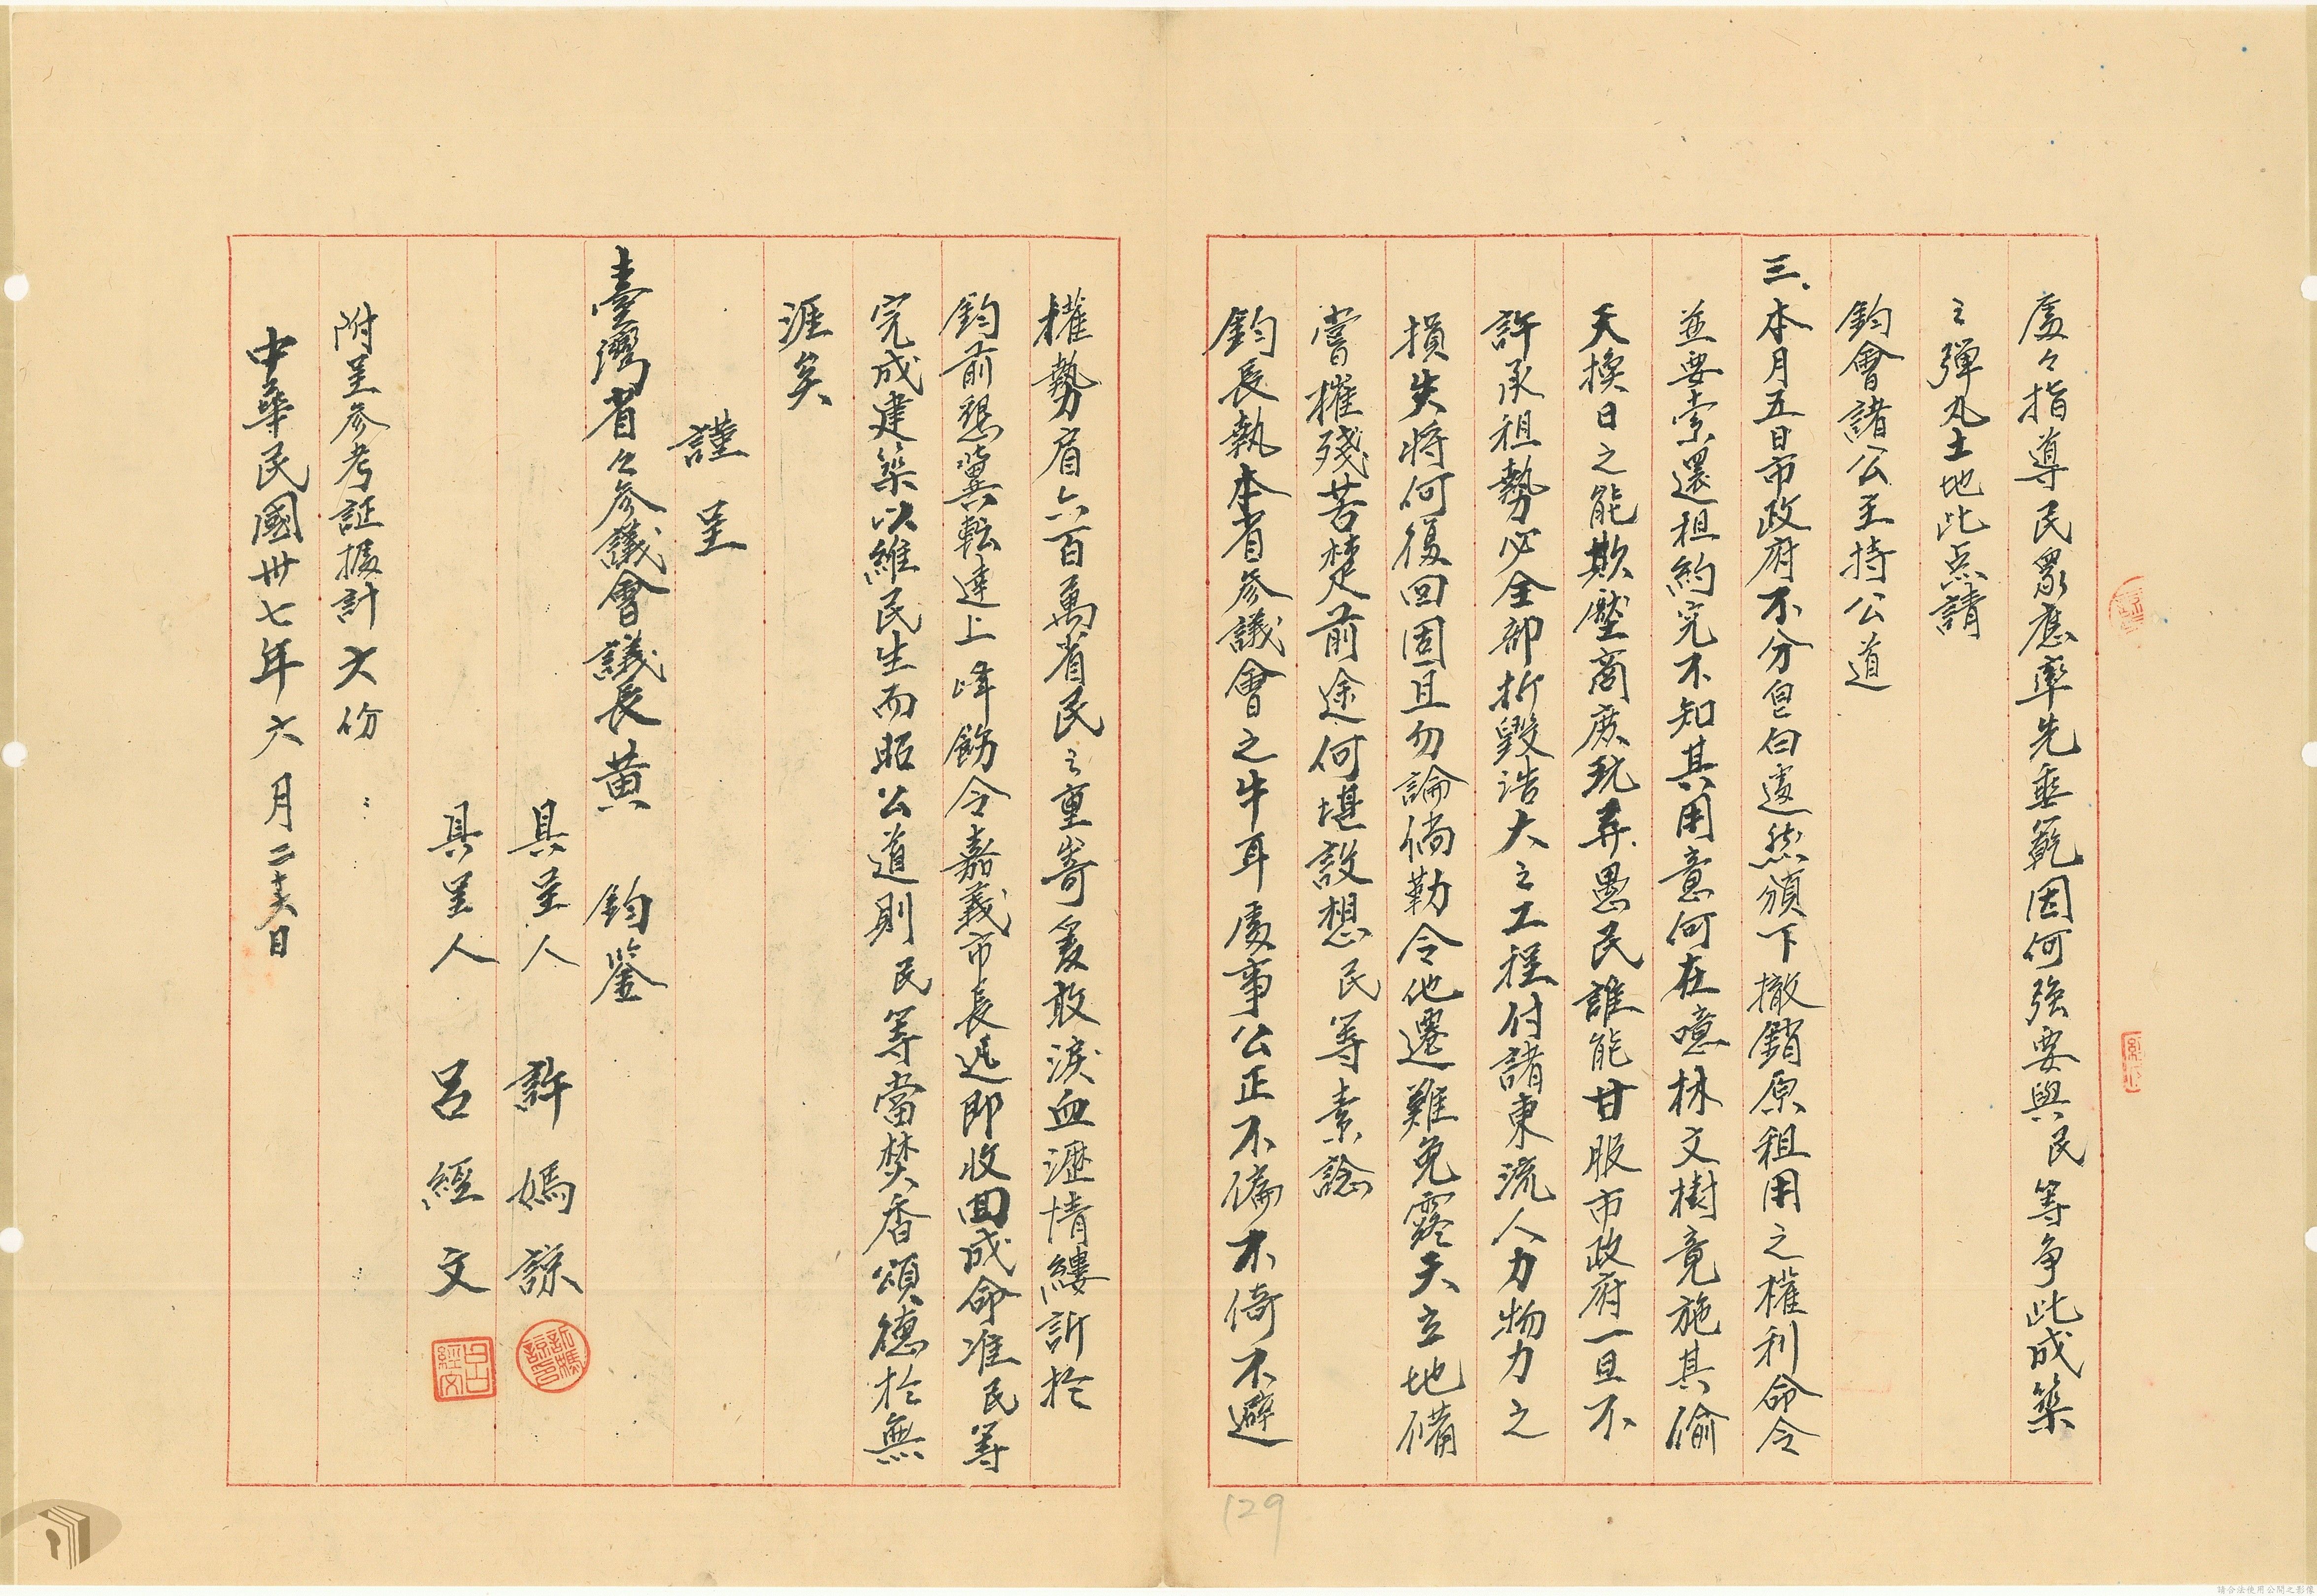 處々指導民眾應率先垂範因何強要與民等爭此成築
之彈丸土地此点請
鈞會諸公主持公道
三、本月五日市政府不分皂白遽然頒下撤銷原租用之權利命令
並要索還租約究不知其用意何在噫林文樹竟施其偷
天換日之能欺壓商庶玩弄愚民誰能甘服市政府一旦不
許承租勢必全部折毀浩大之工程付諸東流人力物力之
損失將何復回固且勿論倘勒令他遷難免露天立地備
嘗摧殘苦楚前途何堪設想民等素諗
鈞長執本省參議會之牛耳處事公正不偏不倚不避
權勢肩六百萬省民之重寄爰敢淚血瀝情縷訴於
鈞前懇冀転達上峰飭令嘉義市長迅即收回成命准民等
完成建築以維民生而昭公道則民等當焚香頌德於無
涯矣
謹呈
臺灣省々參議會議長黃 鈞鑒
具呈人 許媽諒
具呈人 呂經文
附呈參考証據計六份
中華民國卅七年六月二十六日
許媽諒印
呂經文
129
請合法使用公開之影像